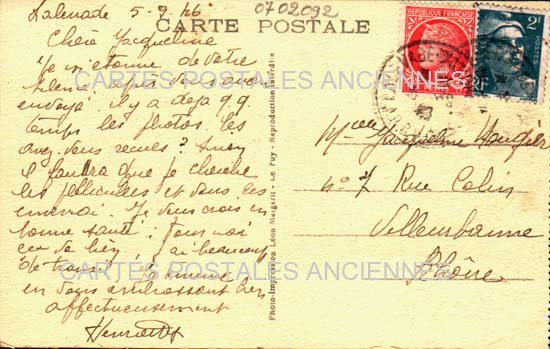 5-9-46
07 02092
CARTE POSTALE
Chère Jacqueline
Je m'étonne de votre
silence après vous avoir
envoyé il y a déjà qq.
temps les photos. Les
avez-vous reçues? Sinon
il faudra que je cherche
les pellicules et vous les
enverrai. Je vous crois en
bonne santé. Pour moi
ça va bien. j'ai beaucoup
de travail. Je termine
en vous embrassant bien
affectueusement
Photo-Impression Léon Margerit - Le Puy - Reproduction interdite
REPUBLIQUE FRANÇAISE
2F
RF
Melle Jacqueline
n° 7 Rue Colin
Villeurbanne
Rhône
CARTES POSTALES ANCIENNES
CARTES POSTALES ANCIENNES